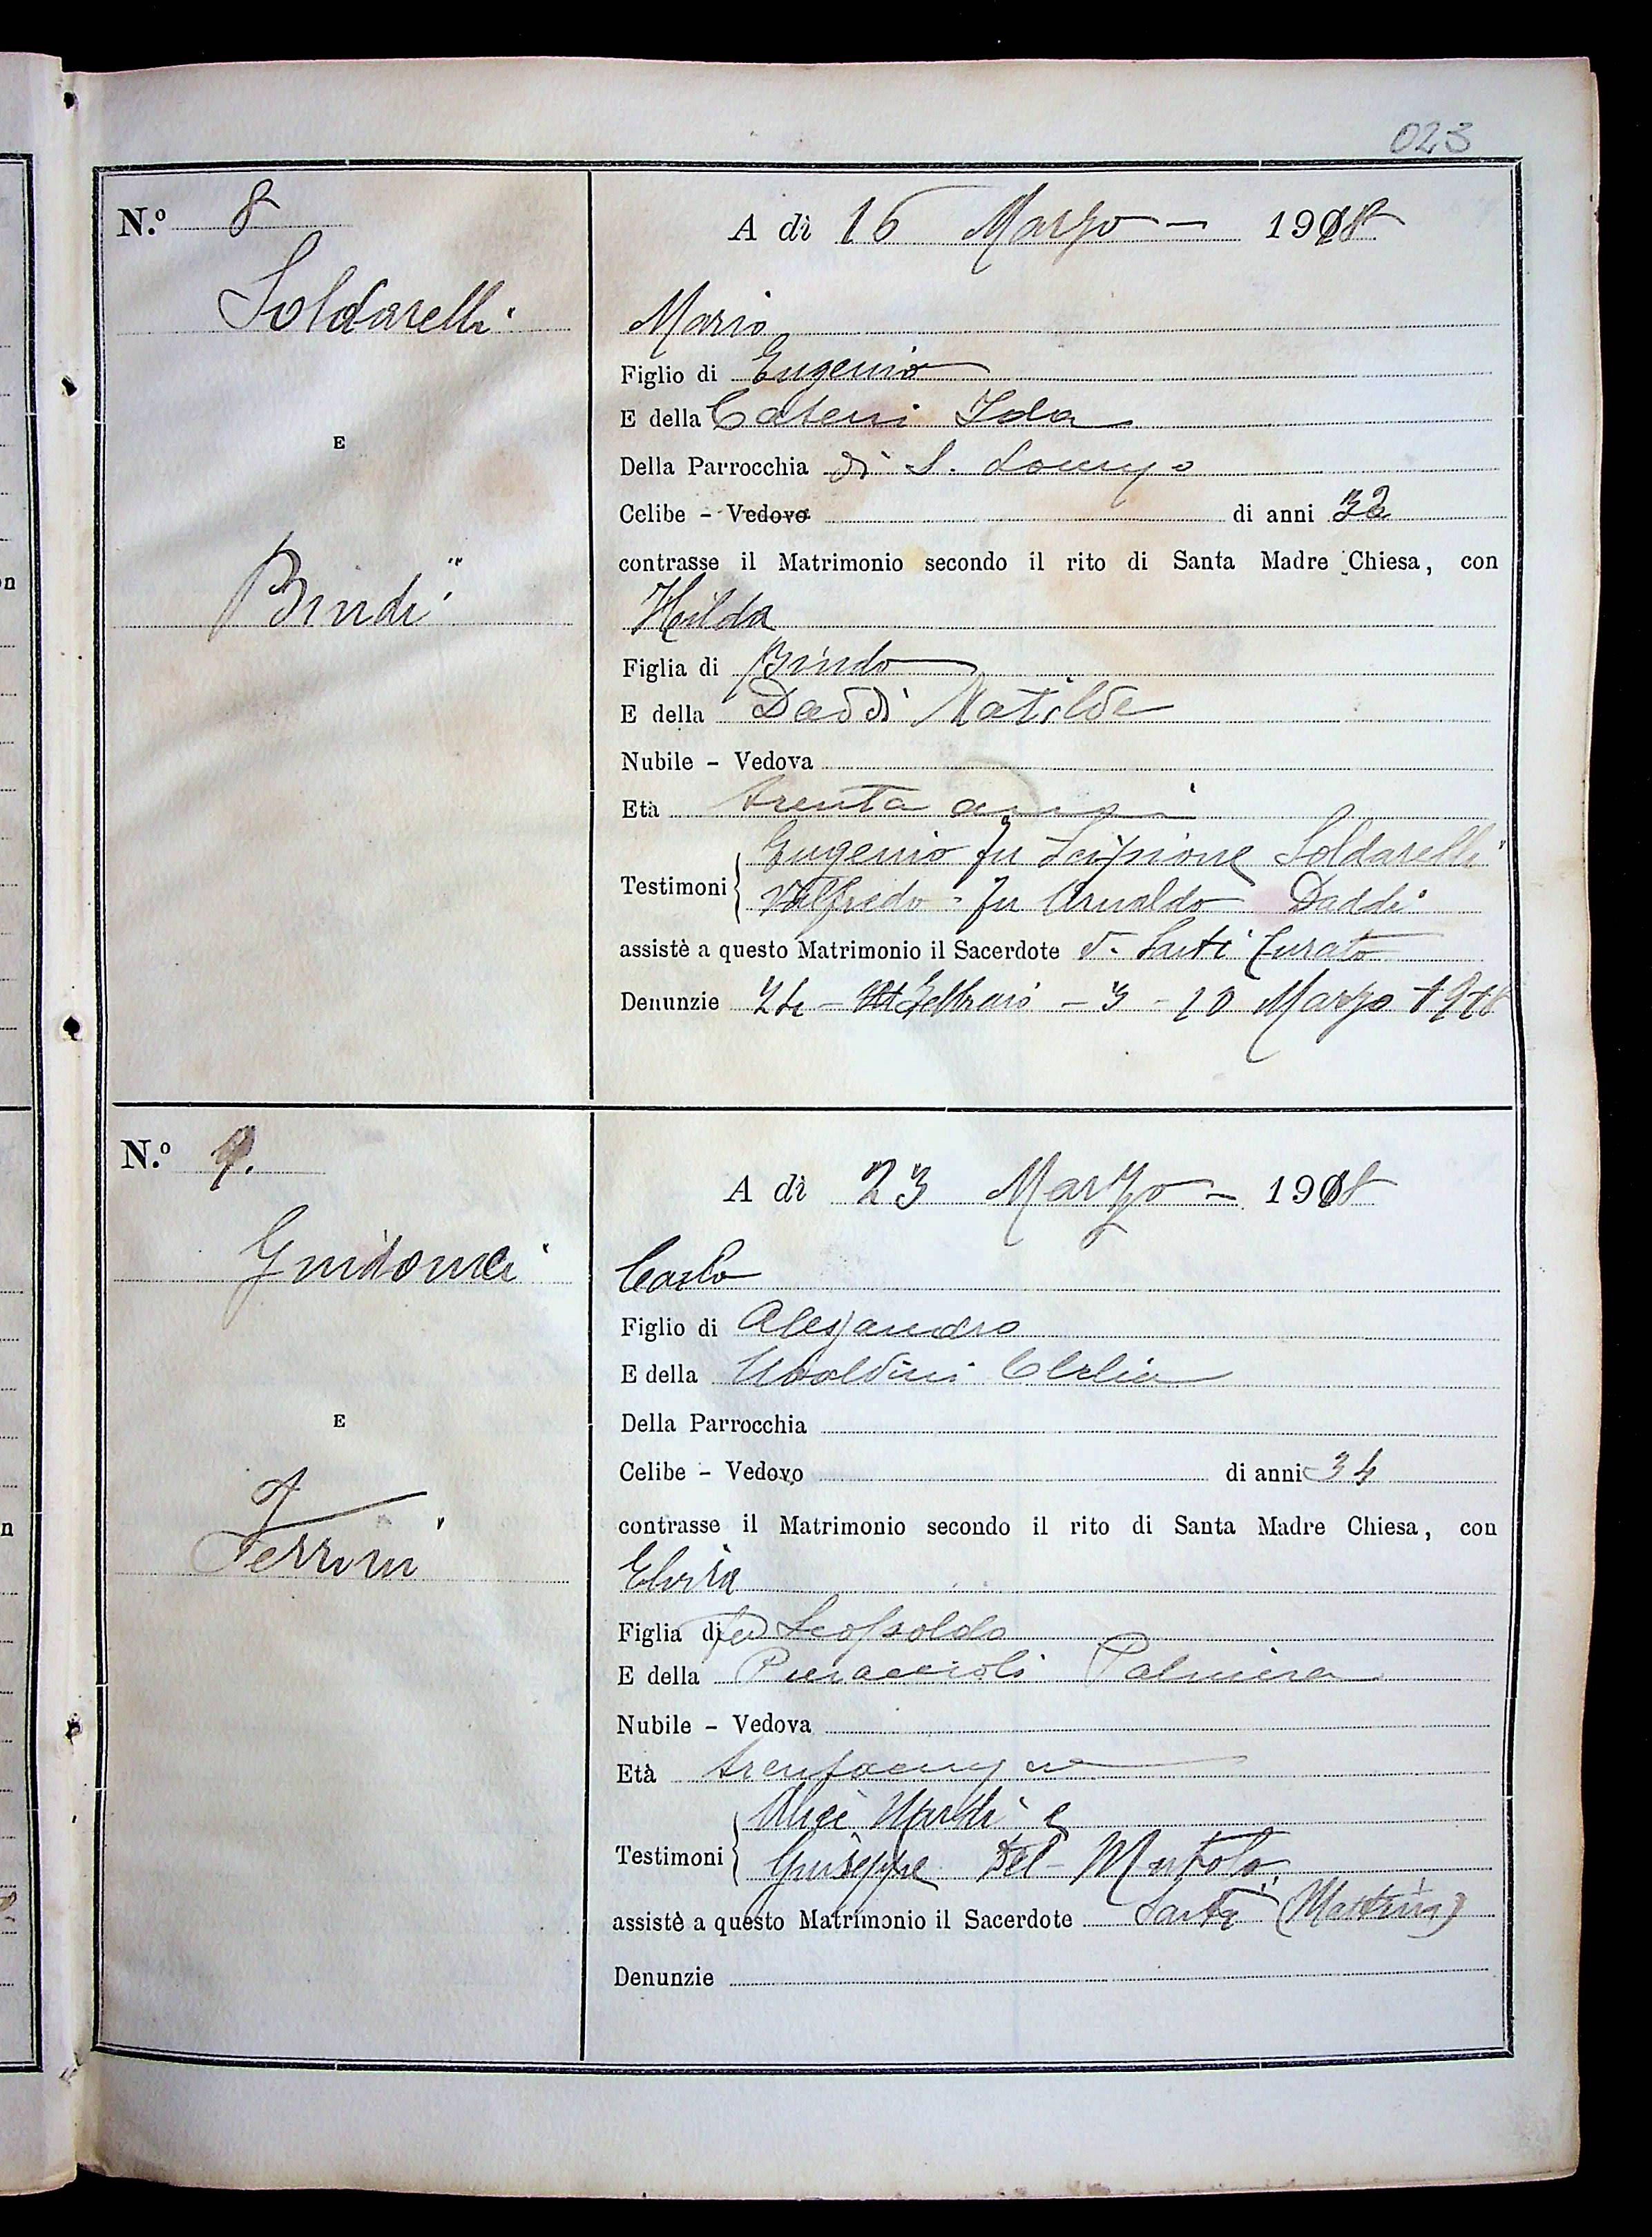 023
N.º 8
A dì 16 Marzo - 1918
Soldarelli
Mario
Figlio di Eugenio
E della Cateni Ida
E
Della Parrocchia di S. Lorenzo
Celibe - Vedovo di anni 32
contrasse il Matrimonio secondo il rito di Santa Madre Chiesa, con
Bindi
Hilda
Figlia di Bindo
E della Daddi Matilde
Nubile - Vedova
Età trenta anni
Testimoni
Eugenio fu Scipione Soldarelli
Valfredo - fu Arnaldo Daddi
assistè a questo Matrimonio il Sacerdote d. Santi Curato
Denunzie 24 - Febbraio - 3 - 10 Marzo 1918
N.º 9.
A dì 23 Marzo - 1918
Guidonci
Carlo
Figlio di Alessandro
E della Ubaldini Clelia
Della Parrocchia
E
Celibe - Vedovo di anni 34
contrasse il Matrimonio secondo il rito di Santa Madre Chiesa, con
Ferrini
Elvira
Figlia di fu Leopoldo
E della Pieraccioli Palmira
Nubile - Vedova
Età
Testimoni
e
Giuseppe Del
assistè a questo Matrimonio il Sacerdote Santi (Mattia)
Denunzie